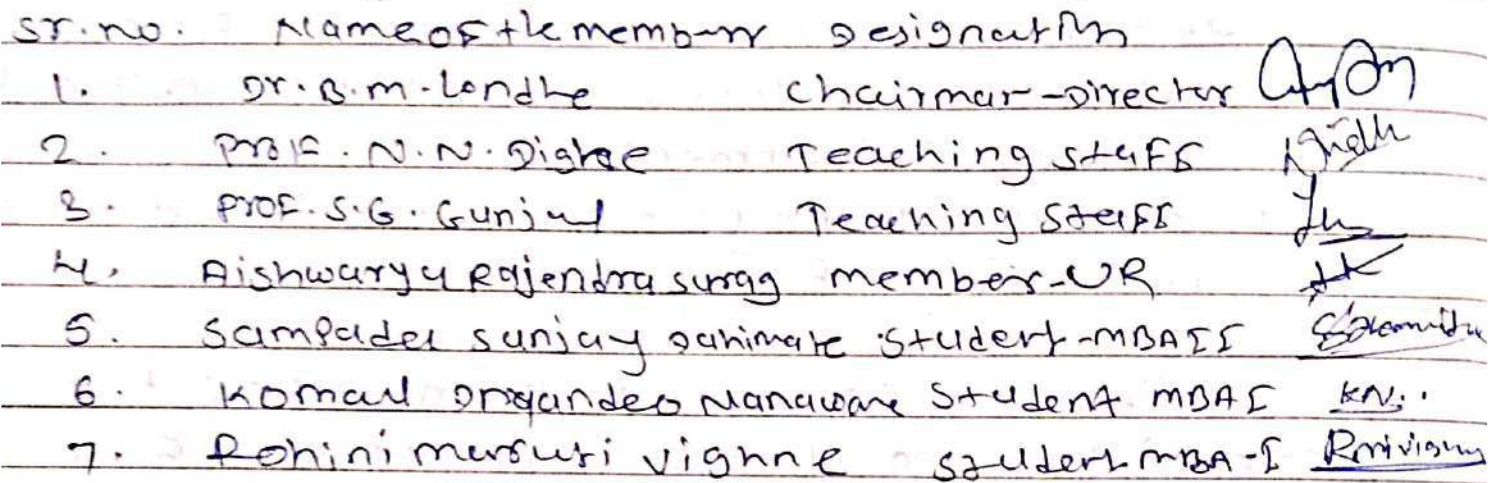 sr.no. Name of the member Designation
1. Dr. B. M. Londhe Chairman-Director
2. Prof. N. N. Dighe Teaching staff
3. Prof. S. G. Gunjal Teaching staff
4. Aishwarya Rajendra member-UR
5. Sampada sanjay Dahimate student-MBA II
6. Komal Dnyandeo Nanaware Student MBA I KN.
7. Rohini maruti vighne student MBA-I